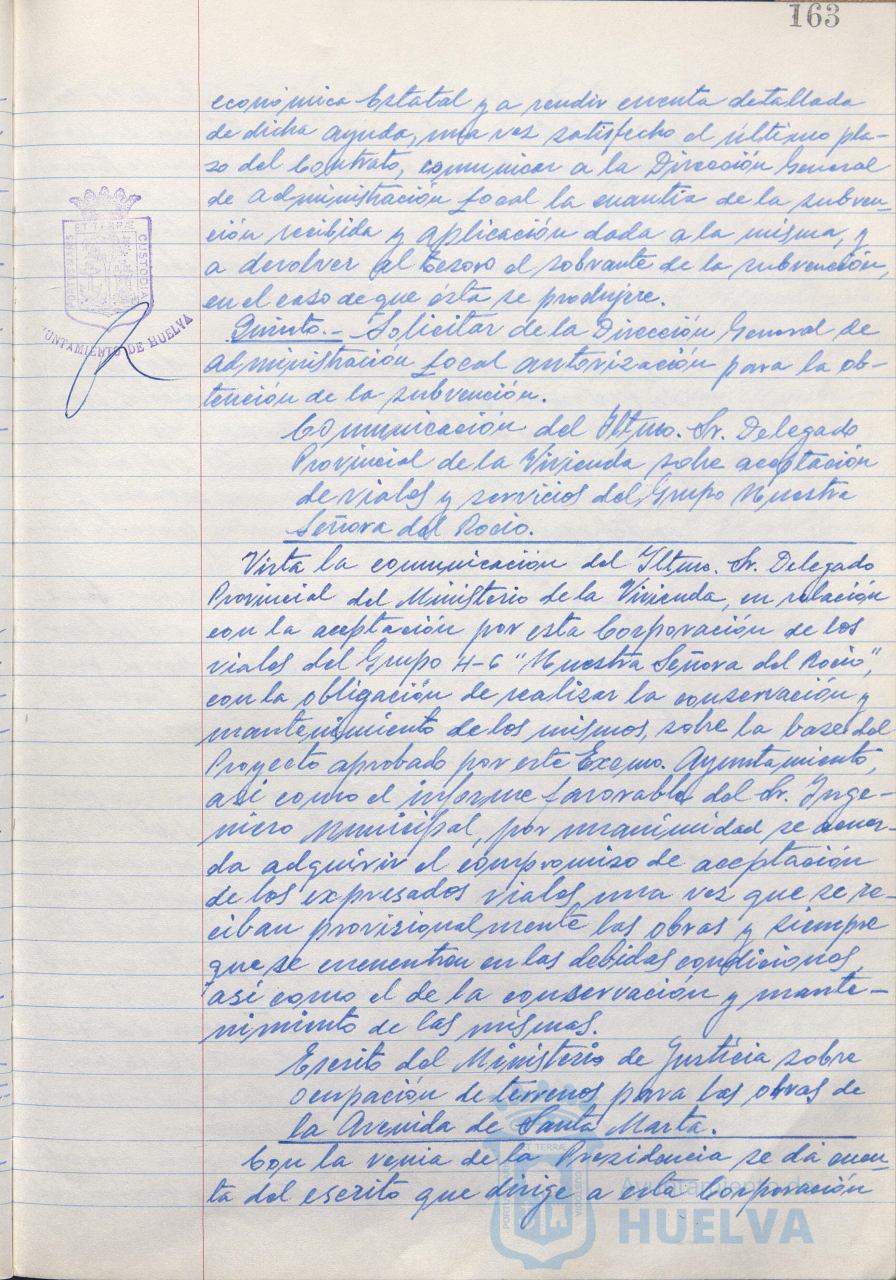 163
económica Estatal y a rendir cuenta detallada
de dicha ayuda, una vez satisfecho el último pla-
zo del Contrato, comunicar a la Dirección General
de Administración Local la cuantía de la subven-
ción recibida y aplicación dada a la misma, y
a devolver al tesoro el sobrante de la subvención,
en el caso de que ésta se produjere.
PORTUS MARIS
ET TERRÆ
CUSTODIA
UNTAMIENTO DE HUELVA
Quinto.- Solicitar de la Dirección General de
Administración Local autorización para la ob-
tención de la subvención.
Comunicación del Iltmo. Sr. Delegado
Provincial de la Vivienda sobre aceptación
de viales y servicios del Grupo Nuestra
Señora del Rocio.
Vista la comunicación del Iltmo. Sr. Delegado
Provincial del Ministerio de la Vivienda, en relación
con la aceptación por esta Corporación de los
viales del Grupo H-6 "Nuestra Señora del Rocio",
con la obligación de realizar la conservación y
mantenimiento de los mismos, sobre la base del
Proyecto aprobado por este Excmo. Ayuntamiento,
así como el informe favorable del Sr. Inge-
niero Municipal, por unanimidad se acuer-
da adquirir el compromiso de aceptación
de los expresados viales, una vez que se re-
ciban provisionalmente las obras y siempre
que se encuentren en las debidas condiciones,
así como el de la conservación y mante-
nimiento de las mismas.
Escrito del Ministerio de Justicia sobre
ocupación de terrenos para las obras de
la Avenida de Santa Marta.
Con la venia de la Presidencia se da cuen-
ta del escrito que dirige a esta Corporación
Ayuntamiento de
HUELVA